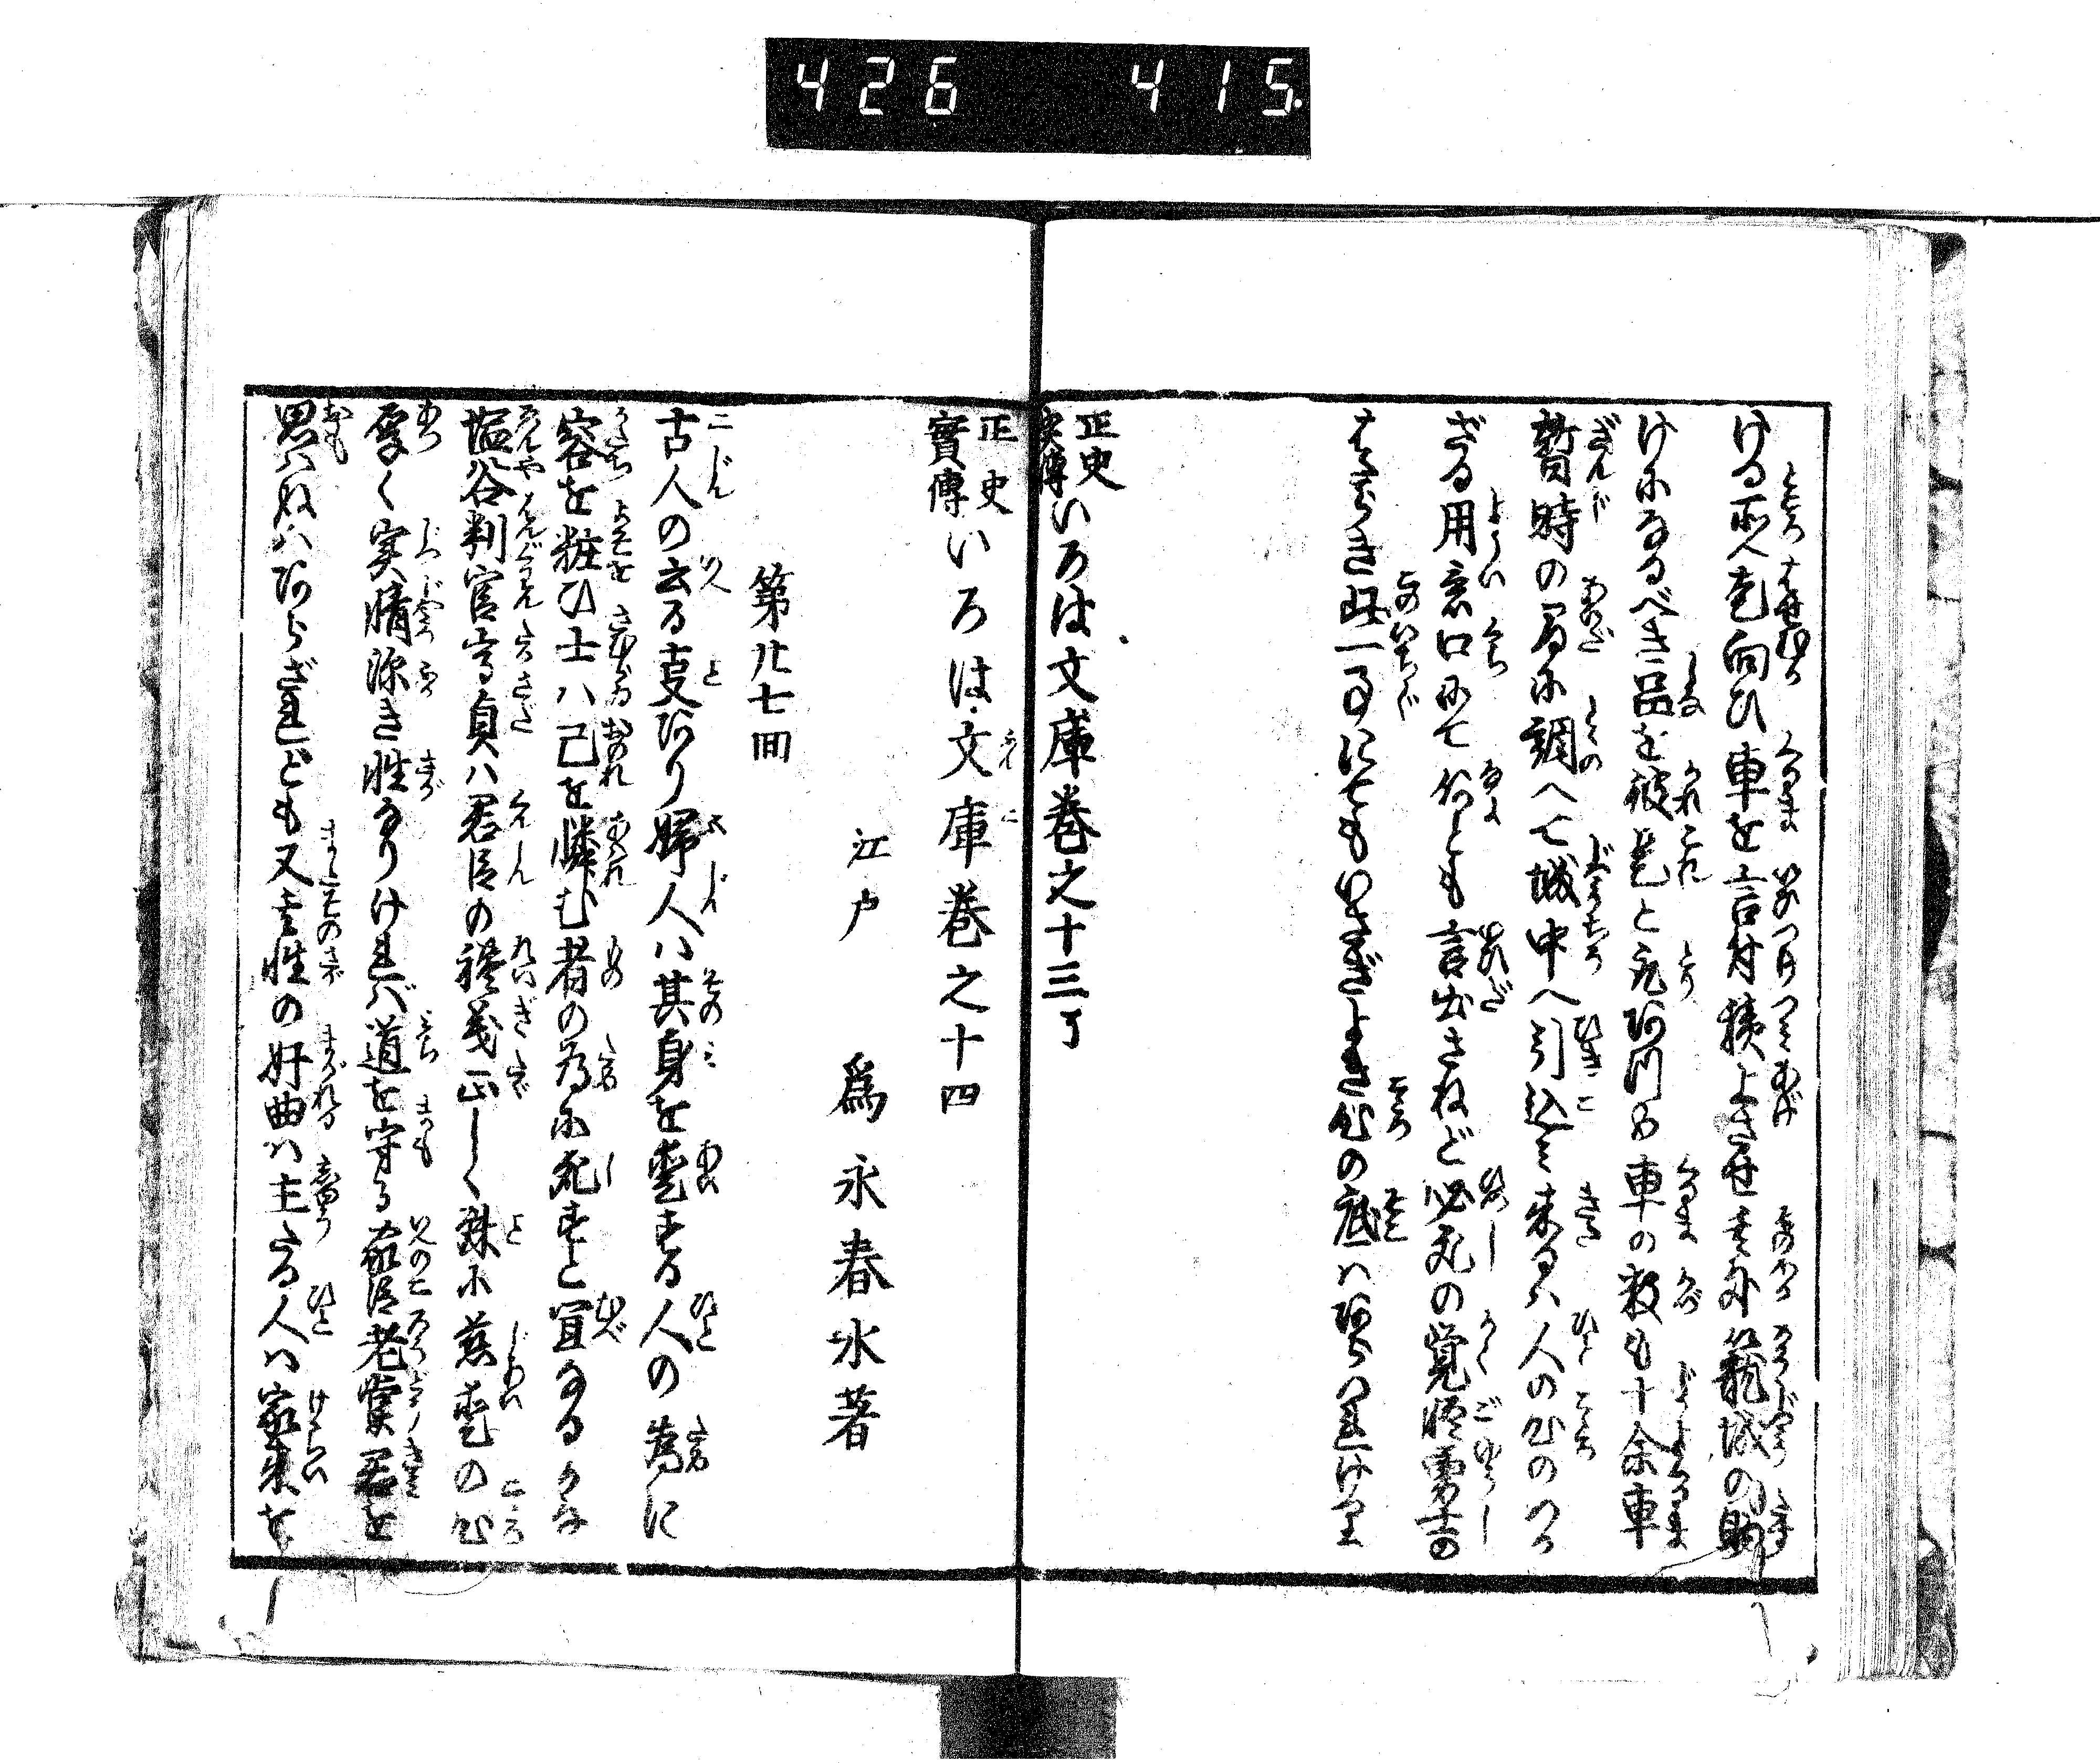 426 415.
ける所へ走向ひ車を言付積よさせ其外籠城の
けになるべき品を彼是と取あつめ車の数も十余車
暫時の間に調へて城中へ引込来るハ人の心のつか
ざる用意口にて何とも言出さねど必死の覚悟勇士の
正史実傳いろは文庫巻之十三了
正史實傳いろは文庫巻之十四
江戸 為永春水著
第廿七回
古人の云る事あり婦人ハ其身を愛する人の為に
容を粧ひ士ハ己を憐む者の為に死すと宜なるかな
塩谷判官高貞ハ君臣の禮義正しく殊に慈愛の心
厚く実情深き性なりけれバ道を守る家臣老黨君を
思ハぬハあらざれども又其性の奸曲ハ主たる人ハ家来を